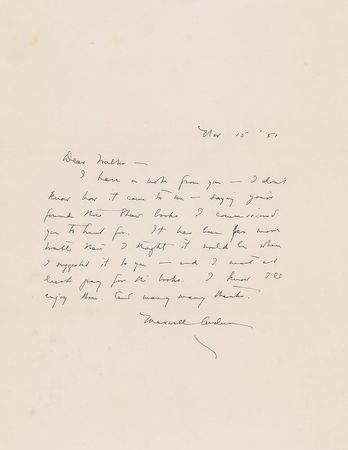 Nov 15 '51
Dear Walter —
I have a note from you — I don't
know how it came to me — saying you've
found the Shaw books I commissioned
you to hunt for. It has been far more
trouble than I thought it would be when
I suggested it to you — and I must at
least pay for the books. I know I'll
enjoy them. And many many thanks.
Maxwell Anderson